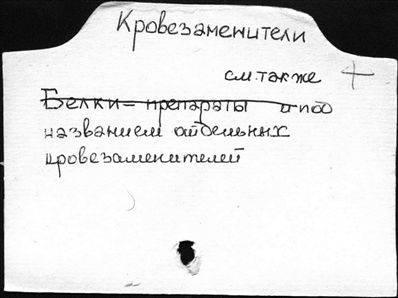 Кровезаменители
см. также +
Белки – препараты и под
названием отдельных
кровезаменителей